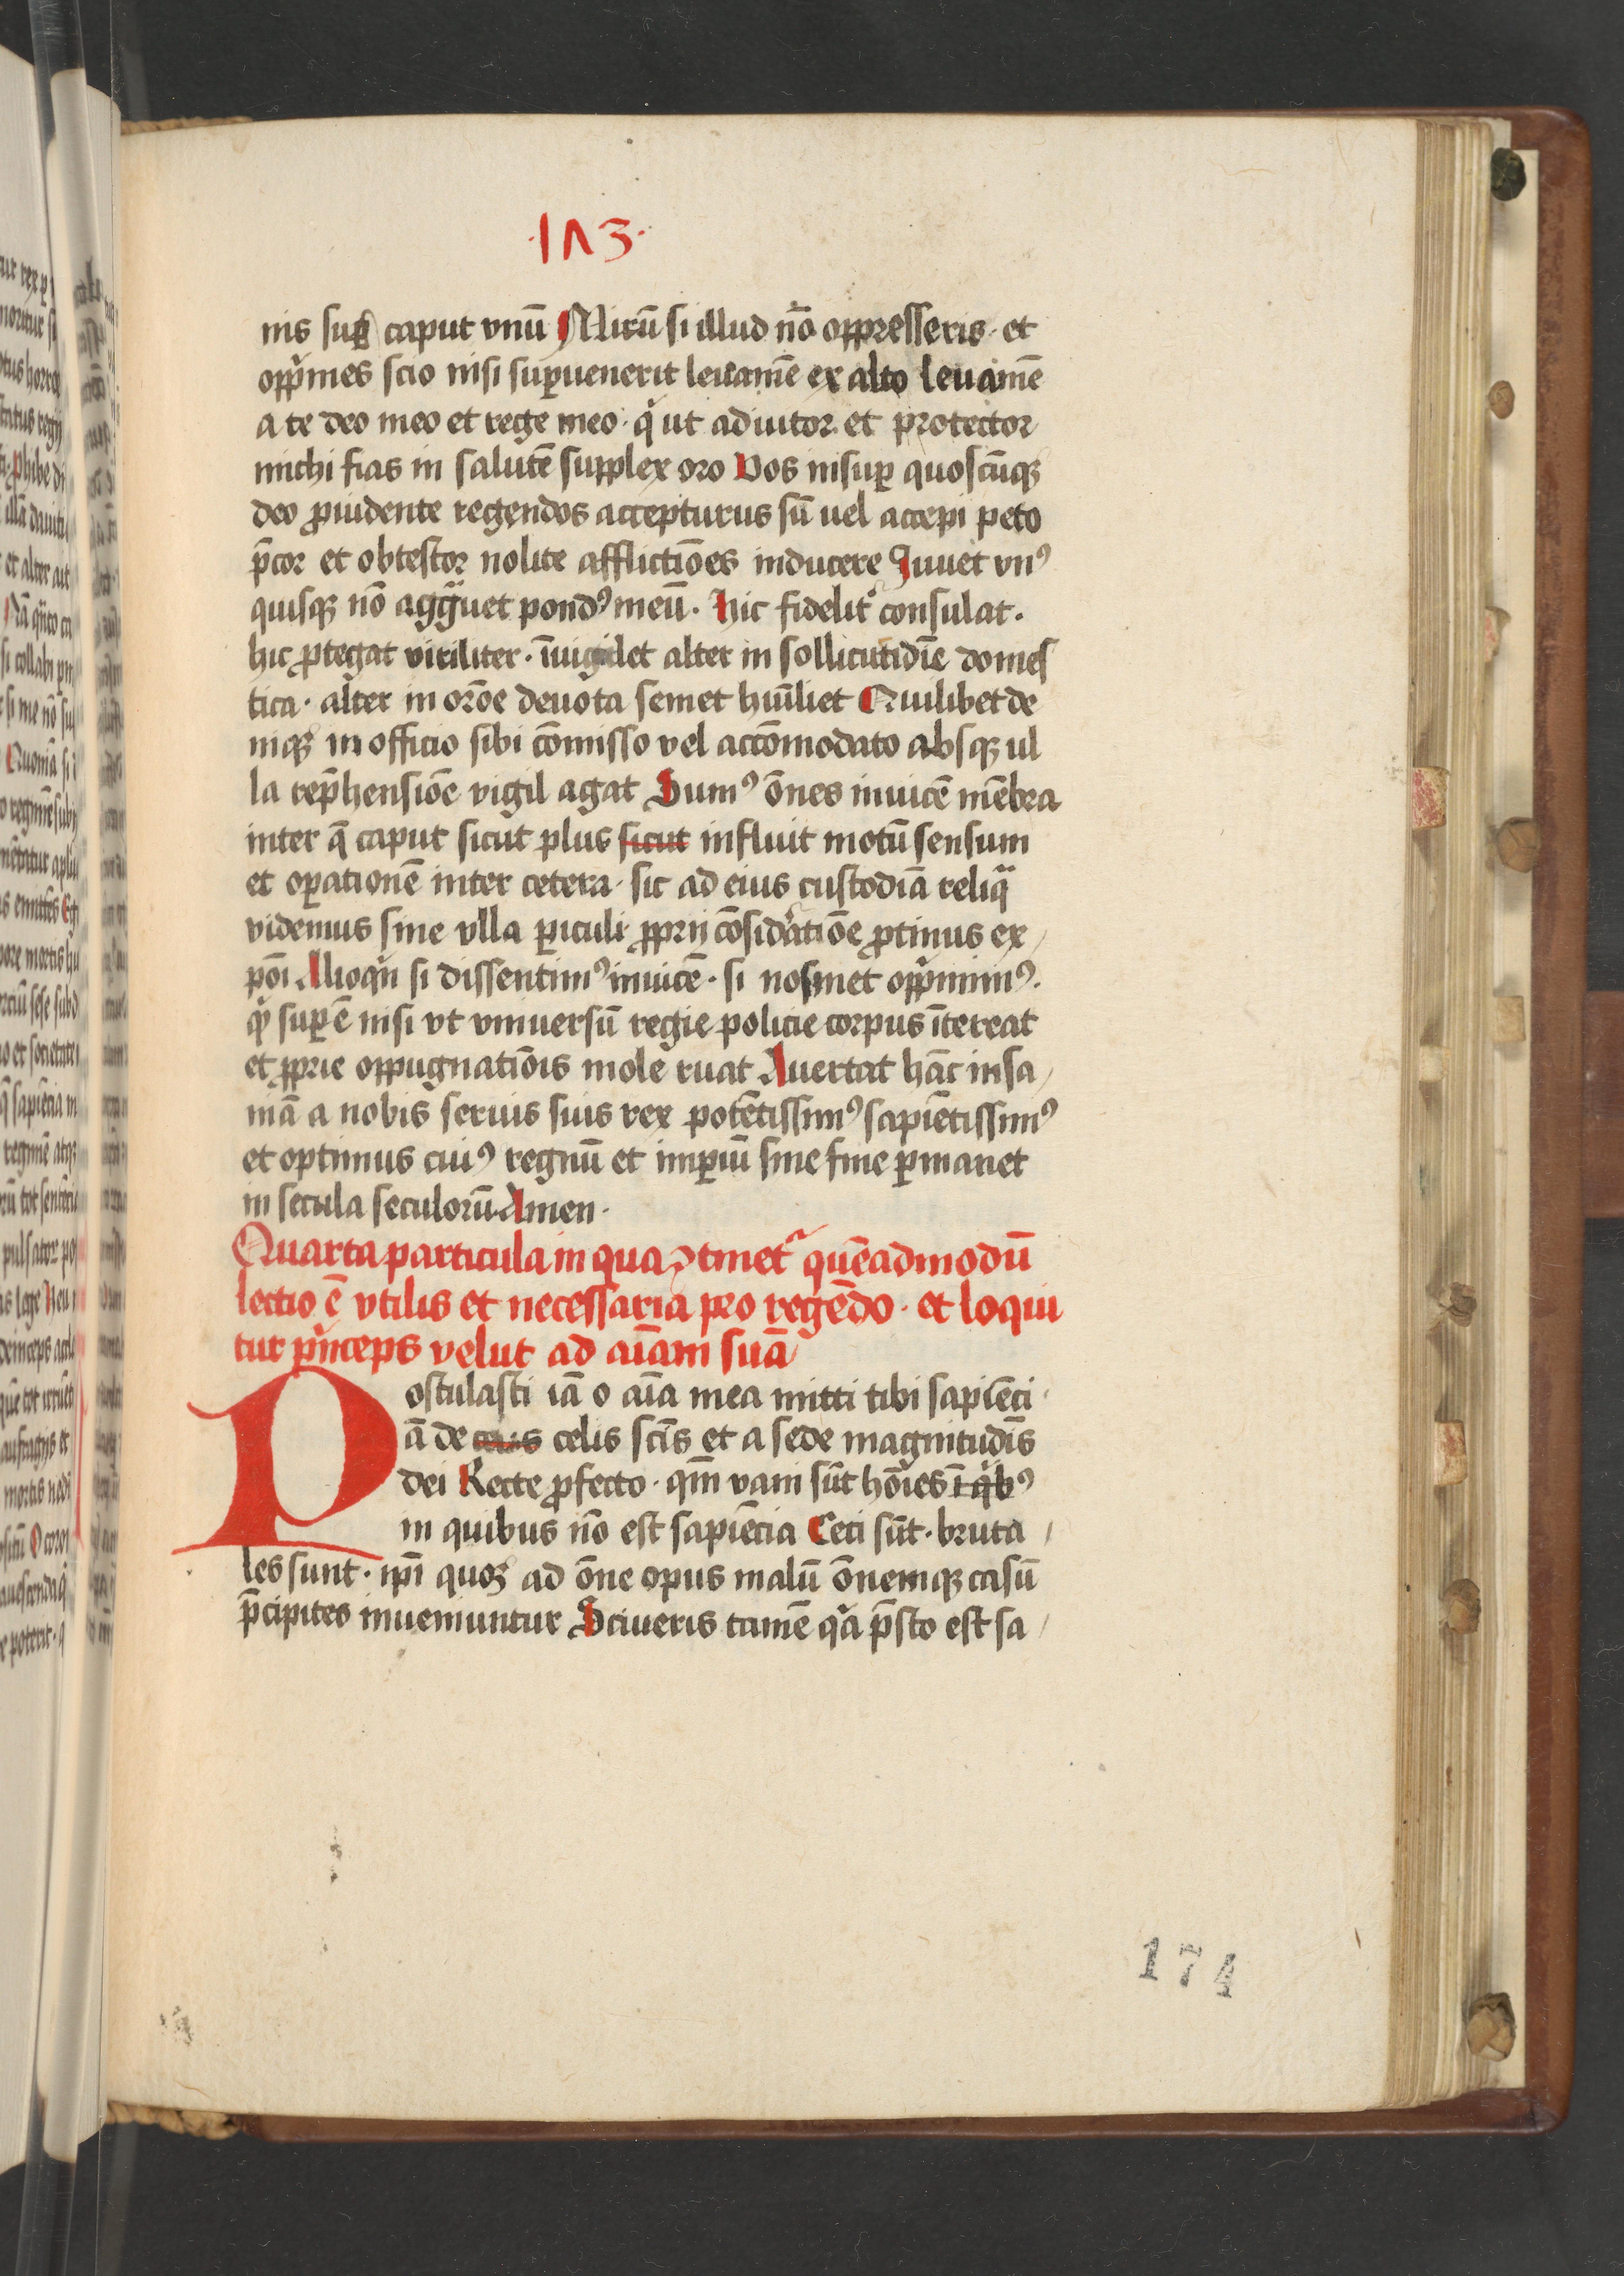 ·1Λ3·
nis sup caput vnū Mirū si illud nō oppresseris · et
opp̄mes scio nisi supuenerit leuamē ex alto leuamē
a te deo meo et rege meo · q̄ ut adiutor et protector
michi fias in salutē supplex oro Vos insup quoscūqꝫ
deo ꝓuidente regendos accepturus sū uel accepi peto
p̄cor et obtestor nolite afflictiōes inducere Juuet vnꝰ
quisqꝫ nō aggͣuet pondꝰ meū · hic fidelit͛ consulat ·
hic ꝓtegat viriliter · īuigilet alter in sollicitudīe domes
tica · alter in orōe deuota semet hūiliet Quilibet de
niqꝫ in officio sibi cōmisso vel accōmodato absqꝫ ul
la rep̄hensiōe vigil agat Sumꝰ ōnes inuicē mēbra
inter q̄ caput sicut plus sicut influit motū sensum
et oꝑationē inter cetera · sic ad eius custodiā reliqͣ
videmus sine vlla ꝑiculi ꝓprij cōsid͛atiōe ꝓtinus ex
pōi Alioqͥn si dissentimꝰ inuicē · si nosmet oppͥmimꝰ ·
qͥd suꝑē nisi vt vniuersū regie policie corpus ītereat
et ꝓprie oppugnatiōis mole ruat Auertat hāc insa
niā a nobis seruis suis rex potētissimꝰ sapiētissimꝰ
et optimus cuiꝰ regnū et imꝑiū sine fine ꝑmanet
in secula seculorū Amen ·
Quarta particula in qua ꝯtinet͛ quēadmodū
lectio ē vtilis et necessaria pro regēdo · et loqui
tur pͥnceps velut ad aīam suā
Postulasti iā o aīa mea mitti tibi sapiēci
ā de celis scīs et a sede magnitudīs
dei Recte ꝓfecto · qm̄ vani sūt hoīes ī qͥbꝰ
in quibus nō est sapiēcia Ceci sūt · bruta
les sunt · ip̄i quoꝫ ad ōne opus malū ōnemqꝫ casū
p̄cipites inueniuntur Sciueris tamē qͥa p̄sto est sa
174